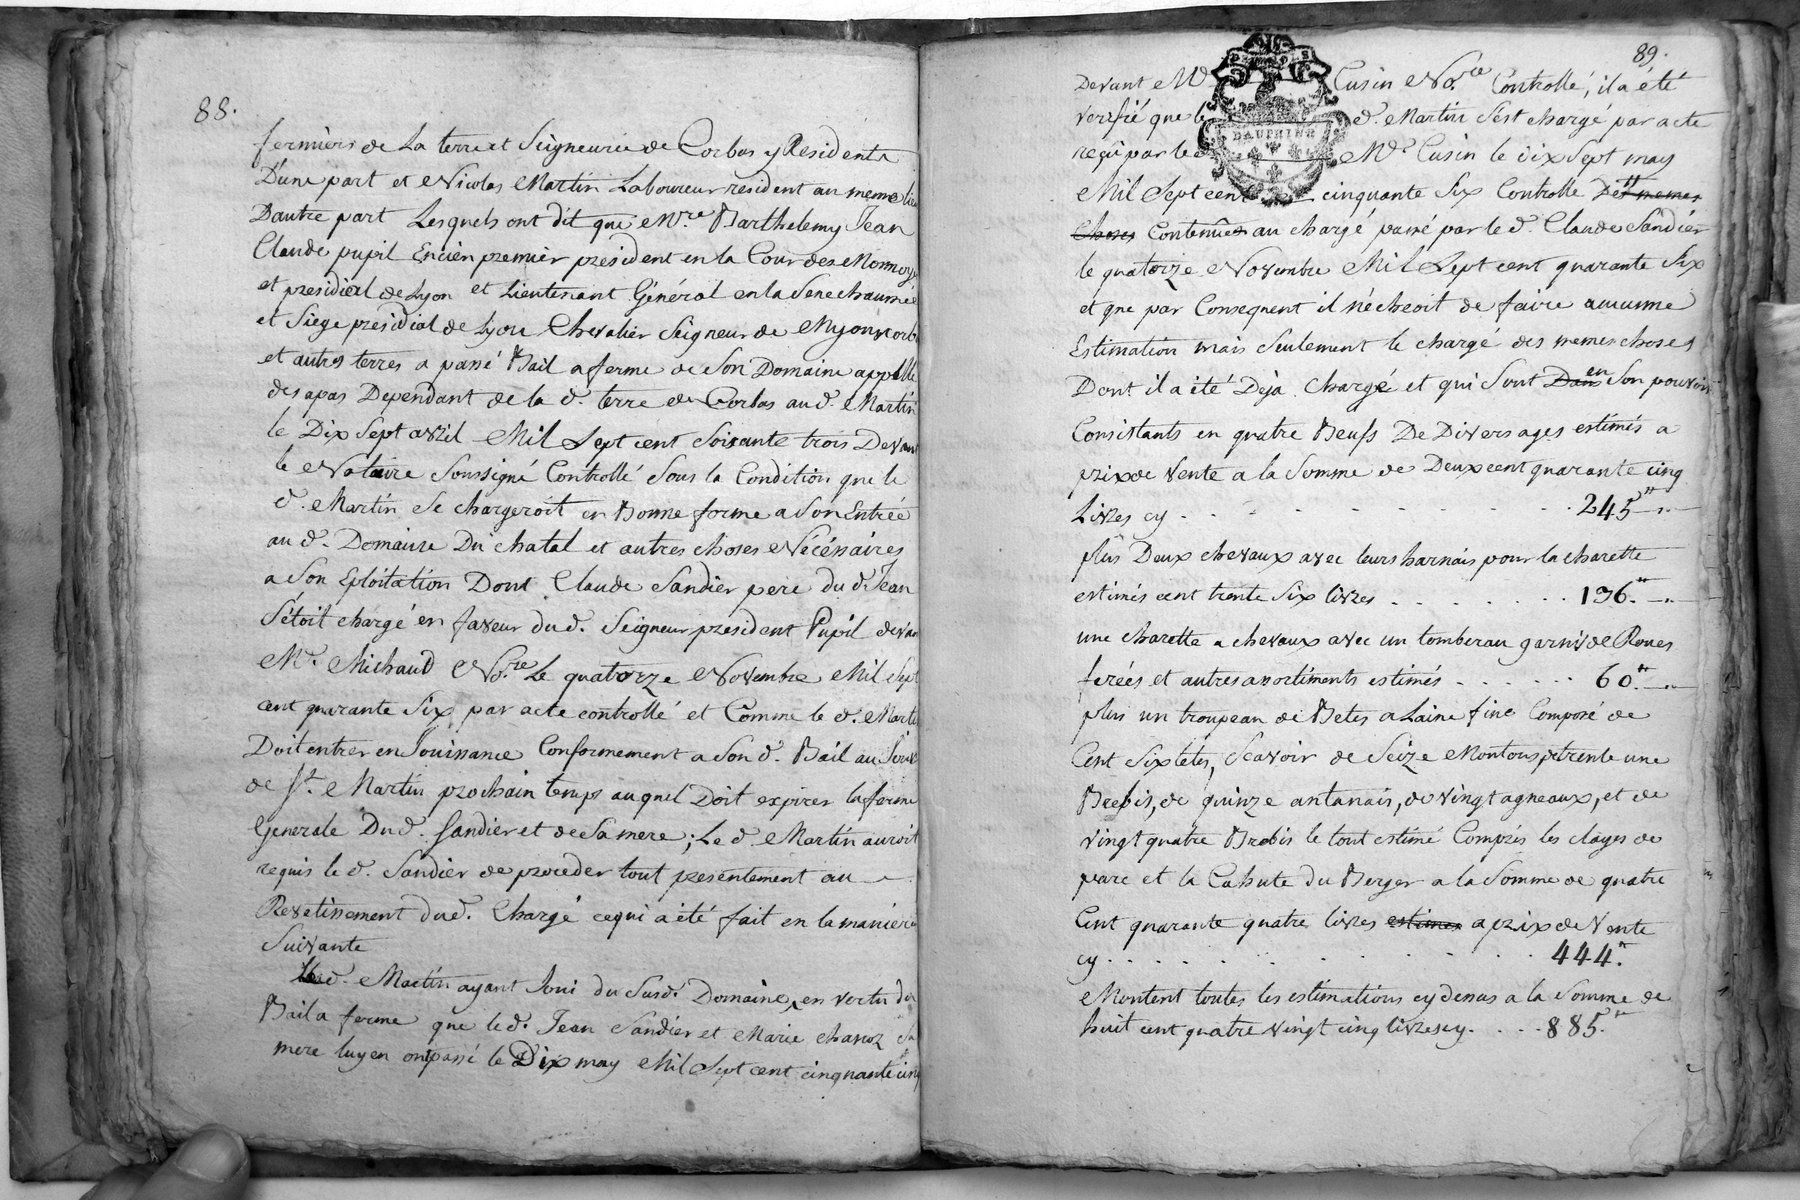 88.
fermiers de La terre et Seigneurie de Corbas y Residents
D'une part et Nicolas Martin Laboureur resident au meme lieu
Dautre part Lesquels ont dit que Mre Barthelemy Jean
Claude pupil Encien premier president en la Cour des Monnoyes
et presidial de Lyon et Lieutenant Général en la Senechaussée
et Siege presidial de Lyon Chevalier Seigneur de Myons Corbas
et autres terres a passé Bail a ferme de Son Domaine appellé
des apas Dependant de la d. terre de Corbas au d. Martin
le Dix Sept avril Mil Sept cent Soixante trois Devant
le Notaire Soussigné Controllé Sous la Condition que le
d. Martin Se chargeroit en Bonne forme a Son Entrée
au d. Domaine Du chatal et autres choses Nécéssaires
a Son Eploitation Dont Claude Sandier pere du d. Jean
S'étoit chargé en faveur du d. Seigneur president Pupil devant
Me. Michaud No.re Le quatorze Novembre Mil Sept
cent quarante Six par acte controllé et Comme le d. Martin
Doit entrer en Jouissance Conformement a Son d. Bail au Jour
de St. Martin prochain temps auquel Doit expirer la ferme
Generale Du d. Sandier et de Sa mere; Le d. Martin auroit
requis le d. Sandier de proceder tout presentement au
Revetissement du d. Chargé ce qui a été fait en la maniere
Suivante
Le d. Martin ayant Joui du Susd. Domaine, en vertu du
Bail a ferme que le d. Jean Sandier et Marie chanoz Sa
mere luy en ont passé le Dix may Mil Sept cent cinquante cinq
89.
Devant Me. Cusin No.re Controllé, il a été
DAUPHINÉ
verifié que le d. Martin S'est chargé par acte
reçû par le d. Me. Cusin le dix Sept may
Mil Sept cent cinquante Six Controllé Des memes
Choses Contenûes au chargé passé par le d. Claude Sandier
le quatorze Novembre Mil Sept cent quarante Six
et que par Consequent il n'écheoit de faire aucune
Estimation mais Seulement le chargé des memes choses
Dont il a été Deja Chargé et qui Sont Dans en Son pouvoir
Consistants en quatre Beufs De Divers ages estimés a
prix de vente a la Somme de Deux cent quarante cinq
Livres cy . . . . . . . . . . 245"—"—
plus Deux chevaux avec leurs harnais pour la charette
estimés cent trente Six livres . . . . . . . 136."—"—
une charette a chevaux avec un tomberau garnis de Roues
ferées et autres assortiments estimés . . . . . . 60."—"—
plus un troupeau de Betes a Laine fine Composé de
Cent Six tétes, Scavoir de Seize Moutons, trente une
Brebis, de quinze antanais, de vingt agneaux, et de
vingt quatre Brebis le tout estimé Compris les clayes de
parc et la Cahute du Berger a la Somme de quatre
Cent quarante quatre livres estimés a prix de Vente
cy . . . . . . . . . . . 444."
Montent toutes les estimations cy dessus a la Somme de
huit cent quatre vingt cinq livres cy. . . . 885."